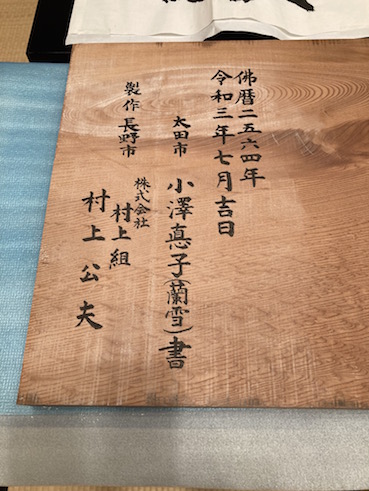 佛暦二五六四年
令和三年七月吉日
太田市 小澤真子(蘭雪)書
製作 長野市 株式会社 村上組
村上公夫